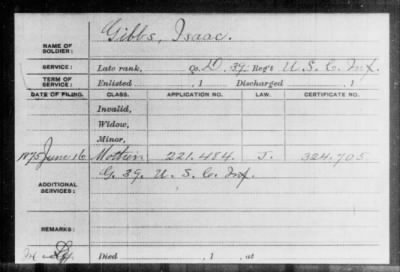 Gibbs, Isaac.
NAME OF SOLDIER:
SERVICE: Late rank, Co. D, 39 Reg't U. S. C. Inf.
TERM OF SERVICE: Enlisted , 1 Discharged , 1
DATE OF FILING. CLASS. APPLICATION NO. LAW. CERTIFICATE NO.
Invalid,
Widow,
Minor,
1875 June 16 Mother 221.484. J. 324.705
ADDITIONAL SERVICES: G. 39. U. S. C. Inf.
REMARKS:
Died , 1 , at